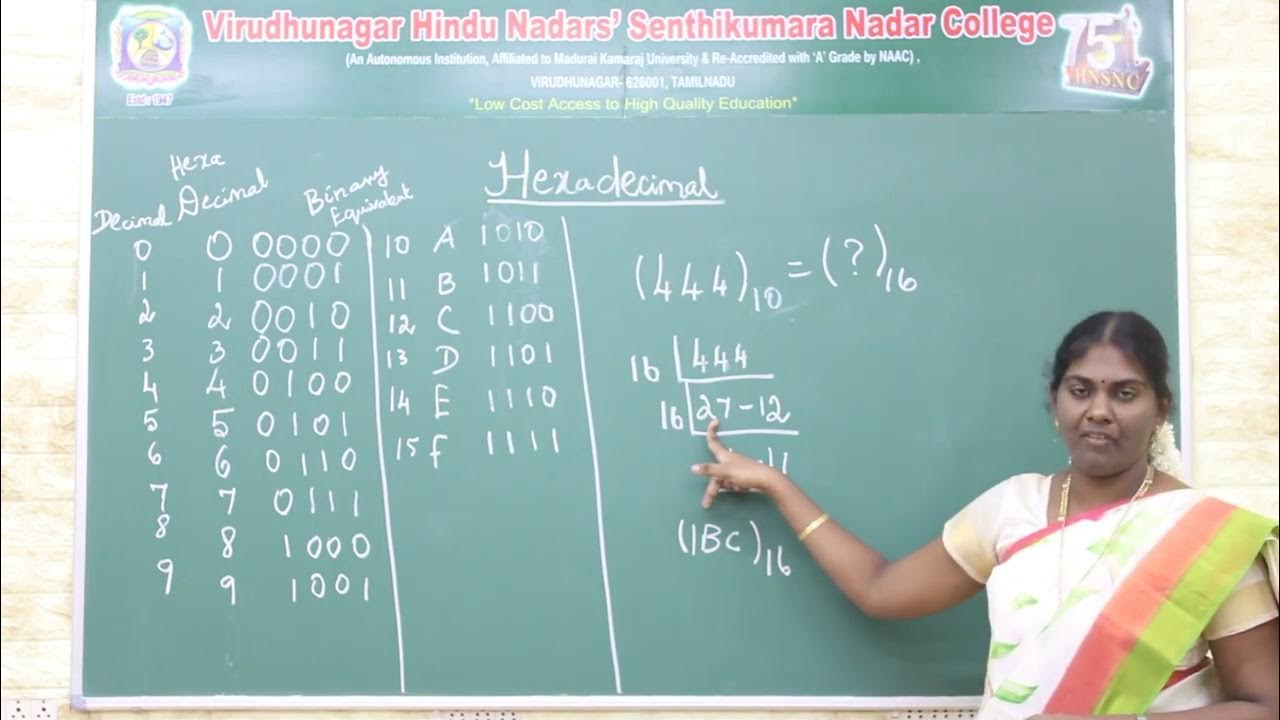 Virudhunagar Hindu Nadars' Senthikumara Nadar College
(An Autonomous Institution, Affiliated to Madurai Kamaraj University & Re-Accredited with 'A' Grade by NAAC) ,
VIRUDHUNAGAR- 626001, TAMILNADU
"Low Cost Access to High Quality Education"
Estd : 1947
75
VHNSNC
Hexadecimal
Decimal Hexa Decimal Binary Equivalent
0 0 0000
1 1 0001
2 2 0010
3 3 0011
4 4 0100
5 5 0101
6 6 0110
7 7 0111
8 8 1000
9 9 1001
10 A 1010
11 B 1011
12 C 1100
13 D 1101
14 E 1110
15 f 1111
(444)10 = (?)16
16 444
16 27-12
-11
(1BC)16